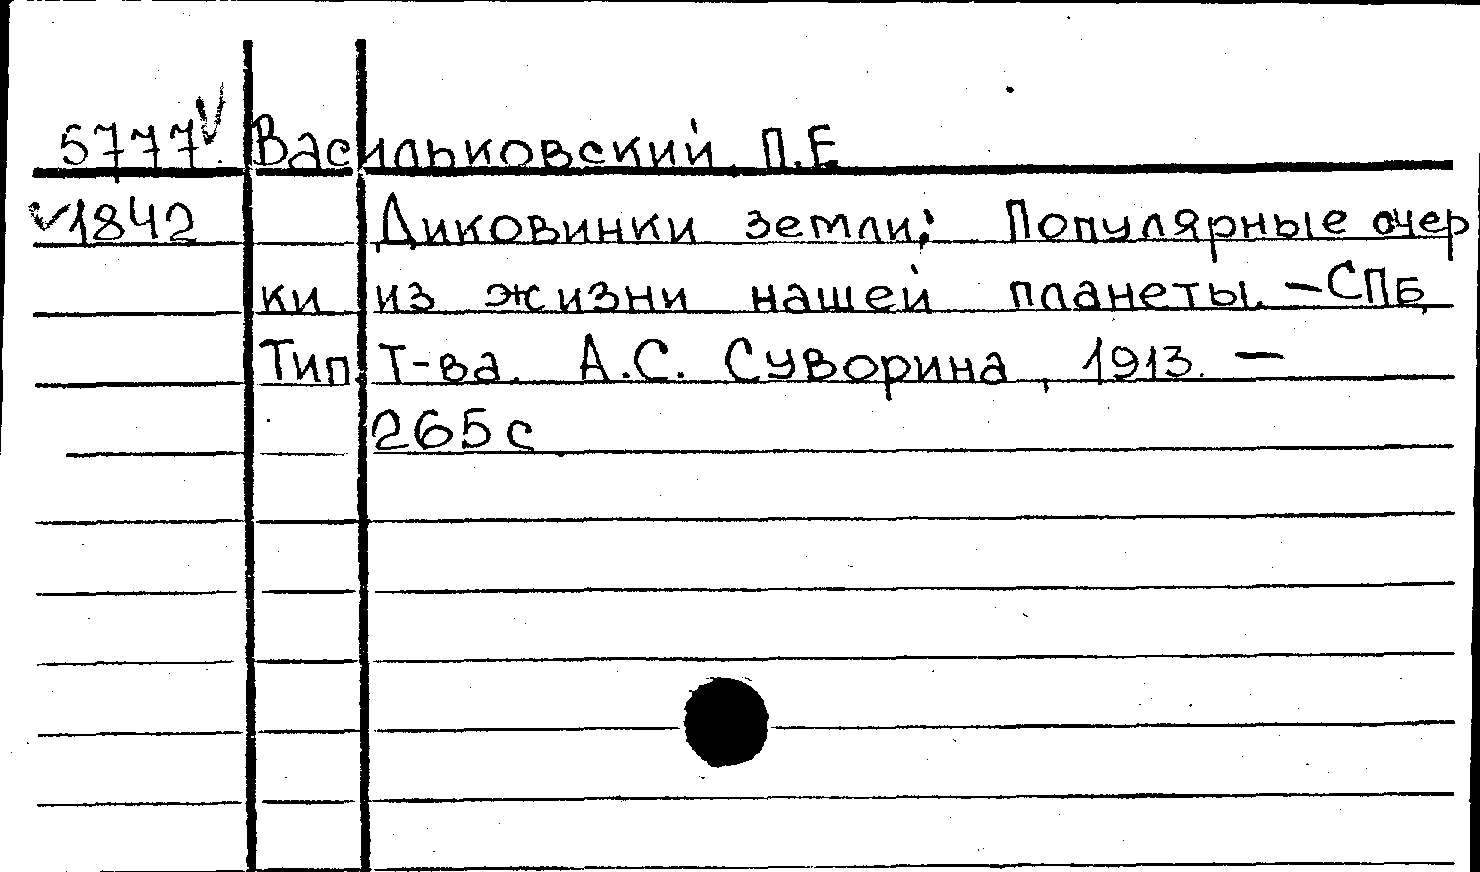 5777 Васильковский П.Е
1842 Диковинки земли: Популярные очер
ки из жизни нашей планеты. – СПб,
Тип. Т-ва. А.С. Суворина, 1913. –
265 с